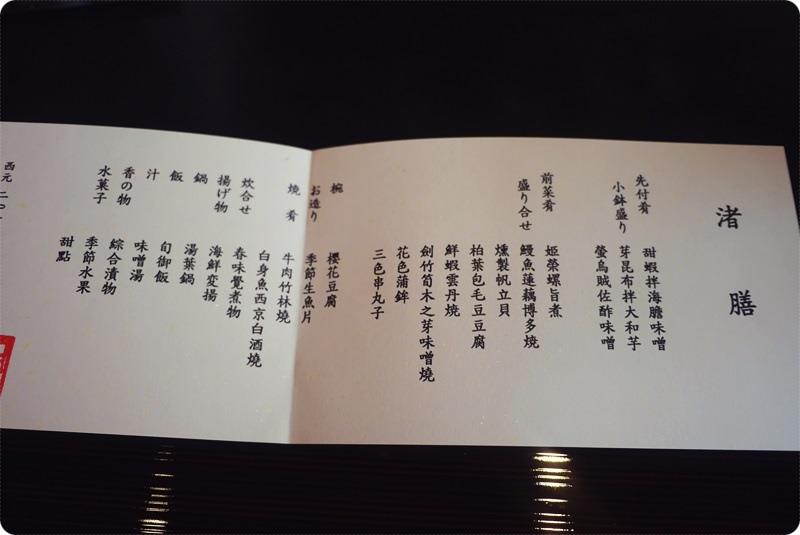 渚膳
先付肴
小鉢盛り
甜蝦拌海膽味噌
芽昆布拌大和芋
螢烏賊佐酢味噌
前菜肴
盛り合せ
姫榮螺旨煮
鰻魚蓮藕博多燒
燻製帆立貝
柏葉包毛豆豆腐
鮮蝦雲丹燒
劍竹筍木之芽味噌燒
花色蒲鉾
三色串丸子
椀
櫻花豆腐
お造り
季節生魚片
燒肴
牛肉竹林燒
白身魚西京白酒燒
炊合せ
春味覺煮物
揚げ物
海鮮変揚
鍋
湯葉鍋
飯
旬御飯
汁
味噌湯
香の物
綜合漬物
水菓子
季節水果
甜點
西元